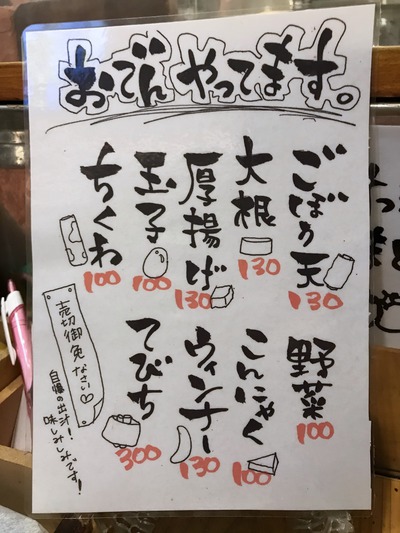 おでんやってます。
ごぼう天
130
大根
130
厚揚げ
130
玉子
100
ちくわ
100
野菜
100
こんにゃく
100
ウィンナー
130
てびち
300
売切御免なさい♡
自慢の出汁!
味しみしみです!